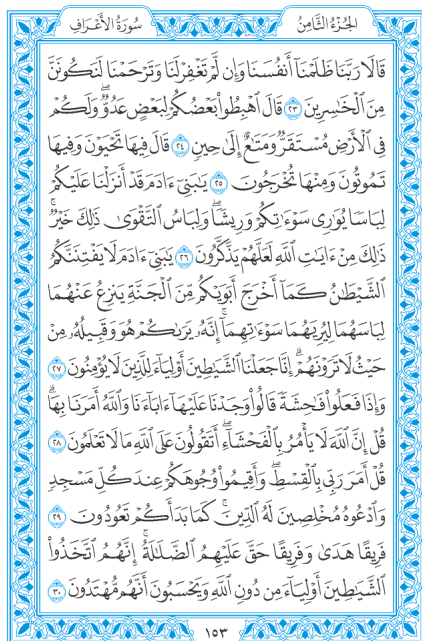 سُورَةُ الأَعْرَافِ
الجُزْءُ الثَّامِنُ
قَالَا رَبَّنَا ظَلَمْنَآ أَنفُسَنَا وَإِن لَّمْ تَغْفِرْ لَنَا وَتَرْحَمْنَا لَنَكُونَنَّ
مِنَ ٱلْخَٰسِرِينَ ٢٣ قَالَ ٱهْبِطُوا۟ بَعْضُكُمْ لِبَعْضٍ عَدُوٌّ ۖ وَلَكُمْ
فِى ٱلْأَرْضِ مُسْتَقَرٌّ وَمَتَٰعٌ إِلَىٰ حِينٍ ٢٤ قَالَ فِيهَا تَحْيَوْنَ وَفِيهَا
تَمُوتُونَ وَمِنْهَا تُخْرَجُونَ ٢٥ يَٰبَنِىٓ ءَادَمَ قَدْ أَنزَلْنَا عَلَيْكُمْ
لِبَاسًا يُوَٰرِى سَوْءَٰتِكُمْ وَرِيشًا ۖ وَلِبَاسُ ٱلتَّقْوَىٰ ذَٰلِكَ خَيْرٌ ۚ
ذَٰلِكَ مِنْ ءَايَٰتِ ٱللَّهِ لَعَلَّهُمْ يَذَّكَّرُونَ ٢٦ يَٰبَنِىٓ ءَادَمَ لَا يَفْتِنَنَّكُمُ
ٱلشَّيْطَٰنُ كَمَآ أَخْرَجَ أَبَوَيْكُم مِّنَ ٱلْجَنَّةِ يَنزِعُ عَنْهُمَا
لِبَاسَهُمَا لِيُرِيَهُمَا سَوْءَٰتِهِمَآ ۗ إِنَّهُۥ يَرَىٰكُمْ هُوَ وَقَبِيلُهُۥ مِنْ
حَيْثُ لَا تَرَوْنَهُمْ ۗ إِنَّا جَعَلْنَا ٱلشَّيَٰطِينَ أَوْلِيَآءَ لِلَّذِينَ لَا يُؤْمِنُونَ ٢٧
وَإِذَا فَعَلُوا۟ فَٰحِشَةً قَالُوا۟ وَجَدْنَا عَلَيْهَآ ءَابَآءَنَا وَٱللَّهُ أَمَرَنَا بِهَا ۗ
قُلْ إِنَّ ٱللَّهَ لَا يَأْمُرُ بِٱلْفَحْشَآءِ ۖ أَتَقُولُونَ عَلَى ٱللَّهِ مَا لَا تَعْلَمُونَ ٢٨
قُلْ أَمَرَ رَبِّى بِٱلْقِسْطِ ۖ وَأَقِيمُوا۟ وُجُوهَكُمْ عِندَ كُلِّ مَسْجِدٍ
وَٱدْعُوهُ مُخْلِصِينَ لَهُ ٱلدِّينَ ۚ كَمَا بَدَأَكُمْ تَعُودُونَ ٢٩
فَرِيقًا هَدَىٰ وَفَرِيقًا حَقَّ عَلَيْهِمُ ٱلضَّلَٰلَةُ ۗ إِنَّهُمُ ٱتَّخَذُوا۟
ٱلشَّيَٰطِينَ أَوْلِيَآءَ مِن دُونِ ٱللَّهِ وَيَحْسَبُونَ أَنَّهُم مُّهْتَدُونَ ٣٠
١٥٣